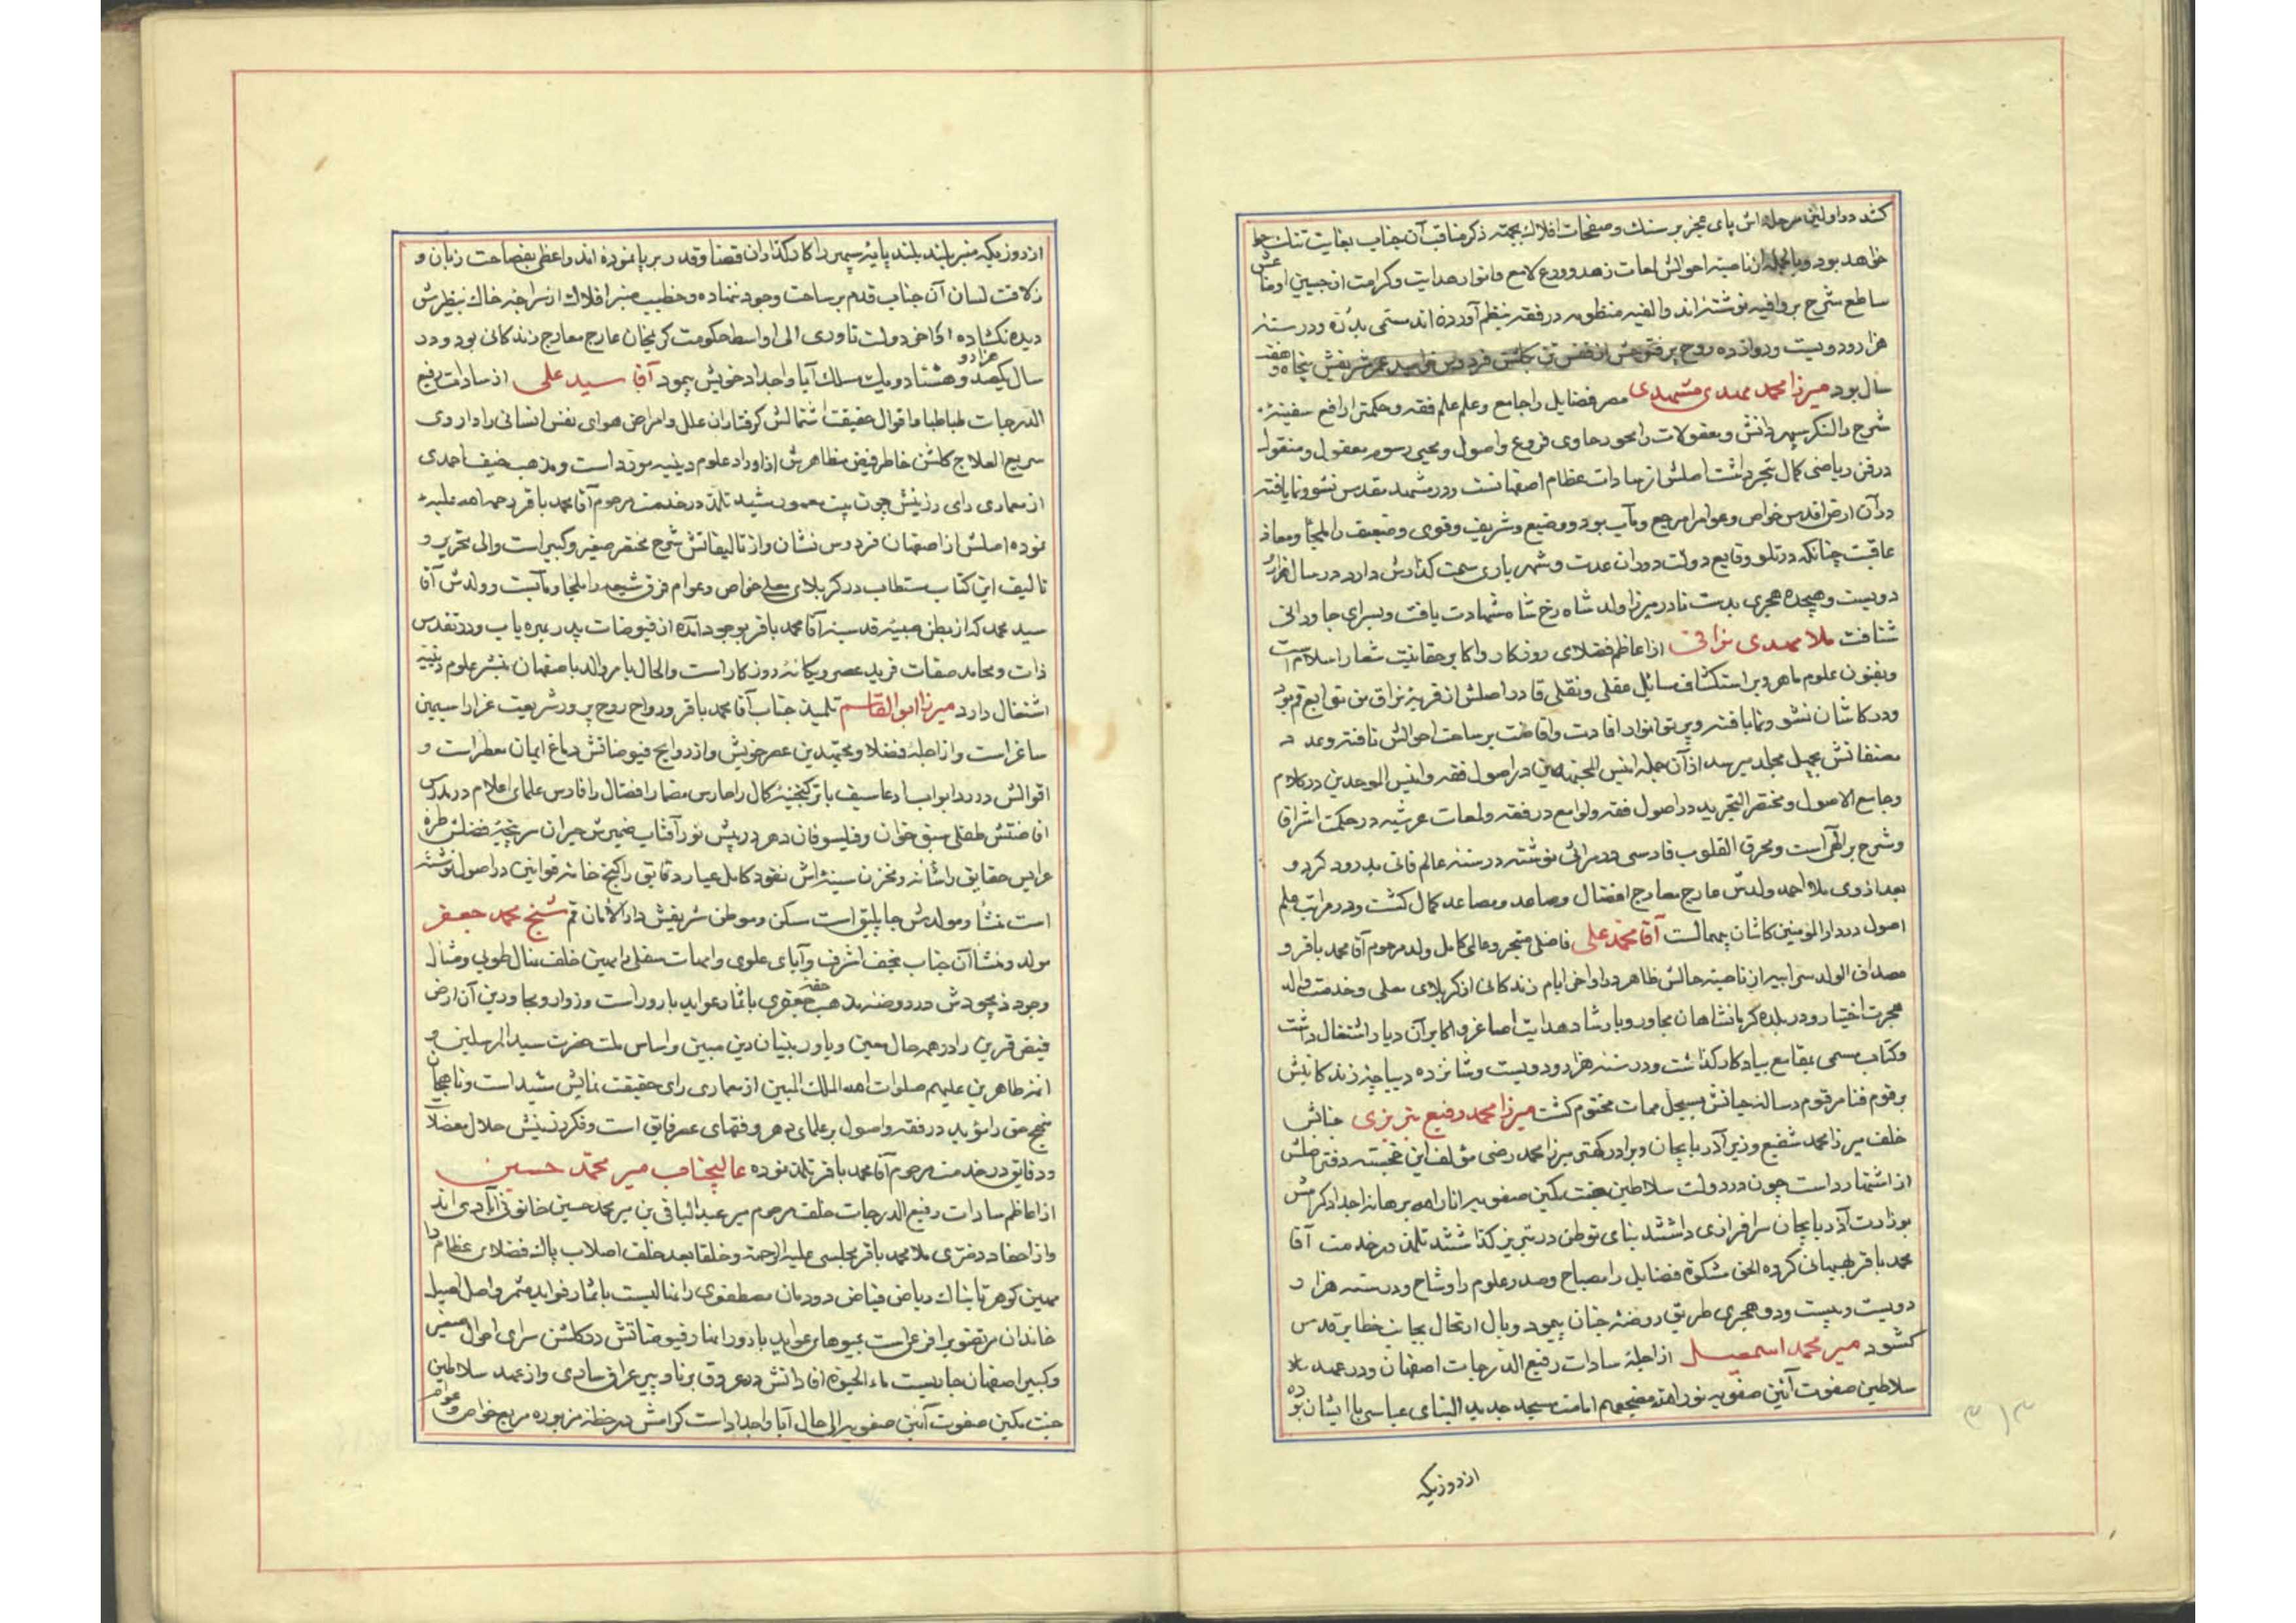 کند در اولین مرحله اش پای عجز بر سنک و صفحات افلاک بجهة ذکر مناقب آن جناب بغایت تنک
خواهد بود و بالجمله از ناصیهٔ احوالش لمعات زهد و ورع لامع و انوار هدایت و کرامت از جبین اوضاعش
ساطع شرح بر وافیه نوشته اند و الفیه منظومه در فقه بنظم آورده اند مسمی بدرّه و در سنهٔ
هزار و دویست و دوازده روح پر فتوحش از قفس تن بکلشن فردوس خرامید عمر شریفش پنجاه و هفت
سال بود میرزا محمد مهدی مشهدی مصر فضایل را جامع و علم علم فقه و حکمترا رافع سفینهٔ
شرح را لنکر سپهر دانش و معقولات را محور حاوی فروع و اصول و محیی رسوم معقول و منقول
در فن ریاضی کمال تبحر داشت اصلش از سادات عظام اصفهانست و در مشهد مقدس نشو و نما یافته
در آن ارض اقدس خواص و عوام را مرجع و مآب بود و وضیع و شریف و قوی و ضعیف را ملجأ و معاذ
عاقبت چنانکه در تلو وقایع دولت دوران عدت و شهریاری سمت کذارش دارد در سال هزار
دویست و هیجده هجری بدست نادر میرزا ولد شاه رخ شاه شهادت یافت و بسرای جاودانی
شتافت ملا مهدی نراقی از اعاظم فضلای روزکار و اکابر حقانیت شعار اسلام است
و بفنون علوم ماهر و بر استکشاف مسائل عقلی و نقلی قادر اصلش از قریهٔ نراق من توابع قم بود
و در کاشان نشو و نما یافته و پرتو انوار افادت و افاضت بر ساحت احوالش تافته و عدد
مصنفاتش بچهل مجلد میرسد از آن جمله انیس المجتهدین در اصول فقه و انیس الموحدین در کلام
و جامع الاصول و مختصر التجرید در اصول فقه و لوامع در فقه و لمعات عرشیه در حکمت اشراق
و شرح بر الهی است و محرق القلوب فارسی در مراثی نوشته در سنه عالم فانی بدرود کرد و
بعد از وی ملا احمد ولدش عارج معارج افضال و صاعد مصاعد کمال کشت و در مراتب علم
اصول در دار المؤمنین کاشان بیهمالست آقا محمد علی فاضلی متبحر و عالمی کامل ولد مرحوم آقا محمد باقر و
مصداق الولد سرّ ابیه از ناصیهٔ حالش ظاهر در اواخر ایام زندکانی از کربلای معلی و خدمت والد
هجرت اختیار و در بلده کرمانشاهان مجاور و بارشاد و هدایت اصاغر و اکابر آن دیار اشتغال داشت
و کتاب مسمی بمقامع بیادکار کذاشت و در سنه هزار و دویست و شانزده دیباچهٔ زندکانیش
برقوم فنا مرقوم و رساله حیاتش بسجل ممات مختوم کشت میرزا محمد رفیع تبریزی جنابش
خلف میرزا محمد شفیع وزیر آذربایجان و برادر کهتر میرزا محمد رضی مؤلف این خجسته دفتر
از اشتهار است چون در دولت سلاطین جنت مکین صفویه انار الله برهانه اجداد کرامش
بوزارت آذربایجان سرافرازی داشتند بنای توطن در تبریز کذاشتند تلمذ در خدمت آقا
محمد باقر بهبهانی کرده الحق مشکوة فضایل را مصباح و صدر علوم را وشاح و در سنه هزار و
دویست و بیست و دو هجری طریق روضهٔ جنان پیمود و بال ارتحال بجانب خطایر قدس
کشود میر محمد اسمعیل از اجلهٔ سادات رفیع الدرجات اصفهان و در عهد
سلاطین صفوت آئین صفویه نور الله مضجعهم امامت مسجد جدید البنای عباسی با ایشان بوده
از روزیکه
از روزیکه منبر بلند پایهٔ سپهر را کارکذاران قضا و قدر بر پا نموده اند واعظی بفصاحت زبان و
زلاقت لسان آن جناب قدم بر ساحت وجود ننهاده و خطیب منبر افلاک از سراچه خاک بنظیرش
دیده نکشاده از اواخر دولت نادری الی اواسط حکومت کریمخان عارج معارج زندکانی بود و در
سال یکهزار و صد و هشتاد و یک مسلک آبا و اجداد خویش پیمود آقا سید علی از سادات رفیع
الدرجات طباطبا و اقوال حقیقت اشتمالش کرفتاران علل و امراض هوای نفس انسانی را داروی
سریع العلاج کلشن خاطر فیض مظاهرش از اوراد علوم دینیه مورّد است و مذهب حنیف احمدی
از معماری رای رزینش چون بیت معمور مشید تلمذ در خدمت مرحوم آقا محمد باقر رحمه الله علیه
نموده اصلش از اصفهان فردوس نشان و از تالیفاتش شرح مختصر صغیر و کبیر است و الی تحریر و
تالیف این کتاب مستطاب در کربلای معلی خواص و عوام فرق شیعه را ملجا و مآبست و ولدش آقا
سید محمد که از بطن صبیهٔ قدسیه آقا محمد باقر بوجود آمده از فیوضات پدر بهره یاب و در تقدس
ذات و محامد صفات فرید عصر و یکانهٔ روزکار است و الحال بامر والد باصفهان بنشر علوم دینیه
اشتغال دارد میرزا ابوالقاسم تلمیذ جناب آقا محمد باقر و رواح روح پرور شریعت غرا را سیمین
ساغر است و از اجلهٔ فضلا و مجتهدین عصر خویش و از روایح فیوضاتش دماغ ایمان معطر است و
اقوالش در رد ابواب سیف باتر کنجینهٔ کمال را حارس مضمار افضال را فارس علمای اعلام در مدرس
افاضتش طفلی سبق خوان و فیلسوفان دهر در پیش نور آفتاب ضمیرش حیران سر پنجهٔ فضلش طرهٔ
عرایس حقایق را شانه و مخزن سینه اش نقود کامل عیار دقایق را کنج خانه قوانین در اصول نوشته
است منشأ و مولدش جاپلق است مسکن و موطن شریفش دار الامان قم شیخ محمد جعفر
مولد و منشأ آن جناب نجف اشرف و آبای علوی و امهات سفلی را مهین خلف نهال طوبی مثال
وجود ذیجودش در روضهٔ مذهب حقهٔ جعفری باثمار عواید بارور است و زوار و مجاورین آن ارض
فیض قرین را در همه حال معین و یاور بنیان دین مبین و اساس ملت حضرت سید المرسلین و
ائمهٔ طاهرین علیهم صلوات الله الملک المبین از معماری رای حقیقت نمایش مشید است و مناهجان
نهج حق را مؤید در فقه و اصول بر علمای دهر و فقهای عصر فایق است و فکر رزینش حلال معضلات
و دقایق در خدمت مرحوم آقا محمد باقر تلمذ نموده عالیجناب میر محمد حسین
از اعاظم سادات رفیع الدرجات خلف مرحوم میر عبد الباقی بن میر محمد حسین خاتون آبادی اند
و از احفاد دختری ملا محمد باقر مجلسی علیه الرحمة و خلفا بعد خلف اصلاب پاک فضلای عظام را
مهین کوهر تابناک ریاض فیاض دودمان مصطفوی را نهالیست باثمار فواید مثمر و اصل اصیل
خاندان مرتضویرا فرعیست بمیوهای عواید بارور انهار فیوضاتش در کلشن سرای احوال صغیر
و کبیر اصفهان جاریست ماء الحیوة افاداتش در عروق برنا و پیر عراق ساری و از عهد سلاطین
جنت مکین صفوت آئین صفویه الی حال آبا و اجداد است کرامش در خطهٔ مزبوره مرجع خواص و عوام